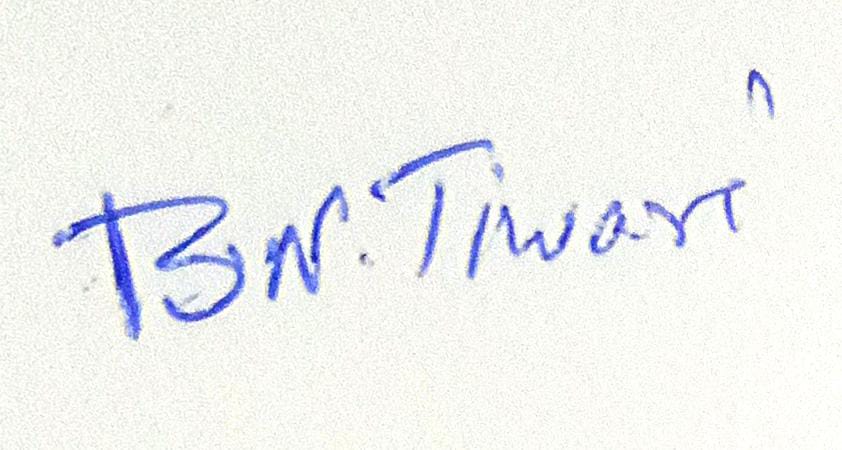 BN. Tiwari